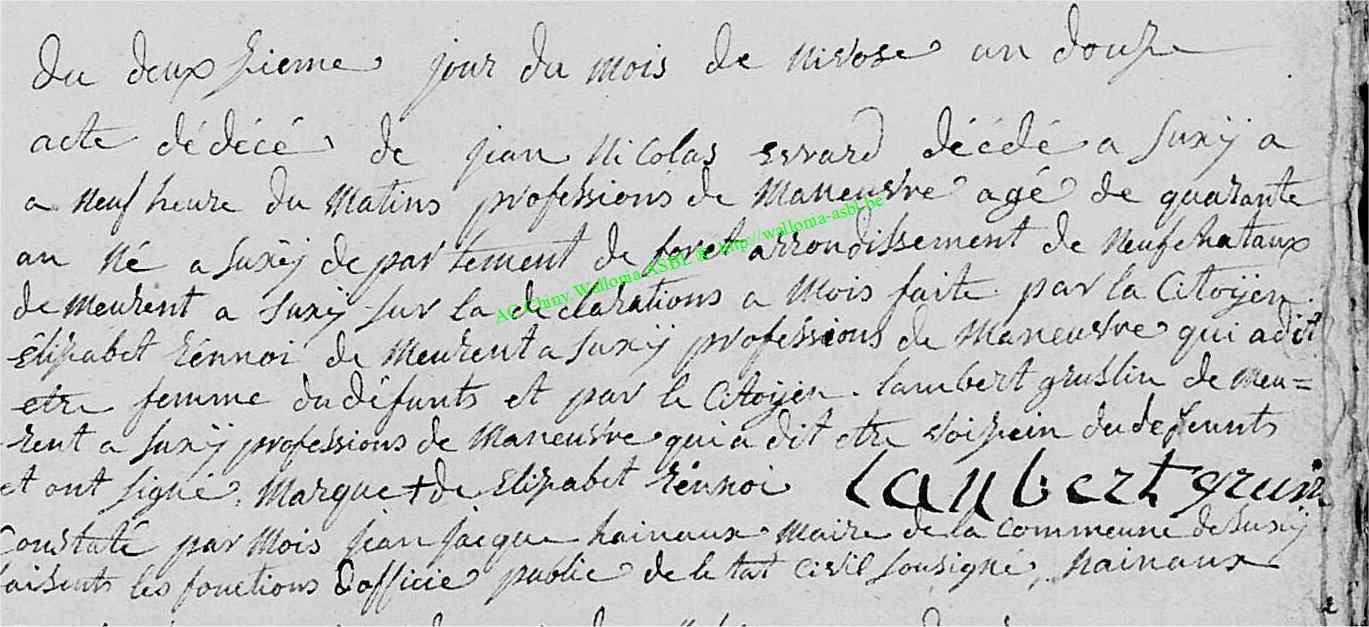 du deuxzieme jour du mois de nivose an douze
acte dédécé de jean nicolas evrard décédé a Suxÿ a
a neuf heure du matins professions de maneuvre agé de quarante
an né a Suxÿ departement de foret arrondissement de neufchataux
de meurent a Suxÿ sur la declarations a mois faite par la Citoÿen
Elizabet rénnoi de meurent a Suxÿ professions de maneuvre qui a dit
etre femme du défunts et par le Citoÿen lambert gruslin de meu=
rent a Suxÿ professions de maneuvre qui a dit etre voizein du defeunts
et ont signé. marque + de Elizabet rénnoi lambert
Constaté par mois jean jacque hainaux maire de la commeune de Suxÿ
faisents les fonctions d'officie public deletat civil sousigné, hainaux
AC Chiny Wallonia ASBL © http://wallonia-asbl.be